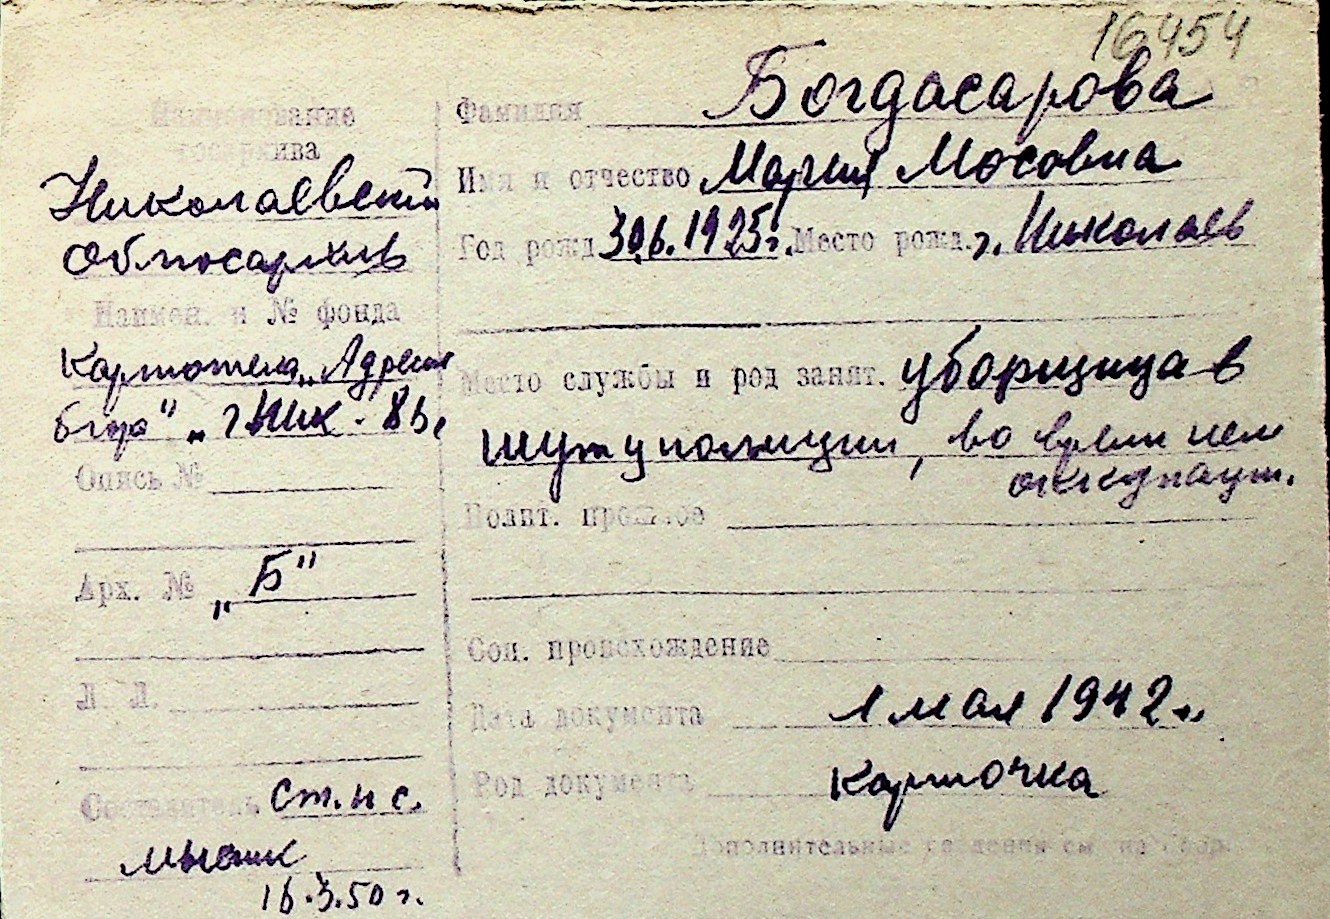 16454
Наименование
госархива
Николаевский
Облгосархив
Наимен. и № фонда
Картотека „Адресн
бюро" „г. Ник - 8 б,
Опись №
Арх. № „Б"
Л. Л.
Составитель ст. н с.
16.3.50 г.
Фамилия Богдасарова
Имя и отчество Мария Мосовна
Год рожд. 30.6.1925г. Место рожд. г. Николаев
Место службы и род занят. уборщица в
полиции, во время нем
оккупации.
Полит. прошлое
Соц. происхождение
Дата документа 1 мая 1942 г.
Род документа карточка
Дополнительные сведения см. на обор.